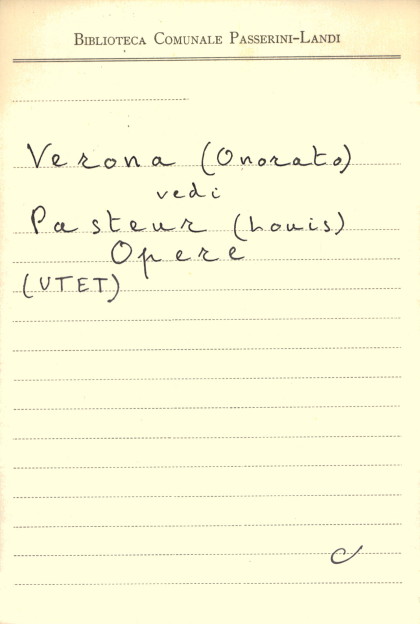 BIBLIOTECA COMUNALE PASSERINI-LANDI
Verona (Onorato)
vedi
Pasteur (Louis)
Opere
(UTET)